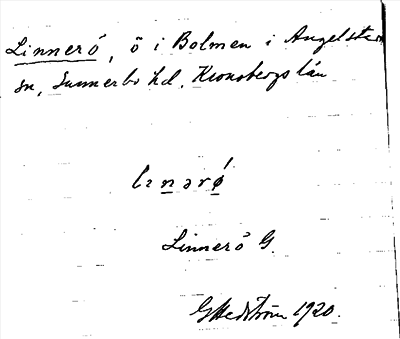 Linnerö, ö i Bolmen i Angelstad
sn, Sunnerbo hd, Kronobergs län
lınərǿ
Linnerö G.
G Hedström 1920.